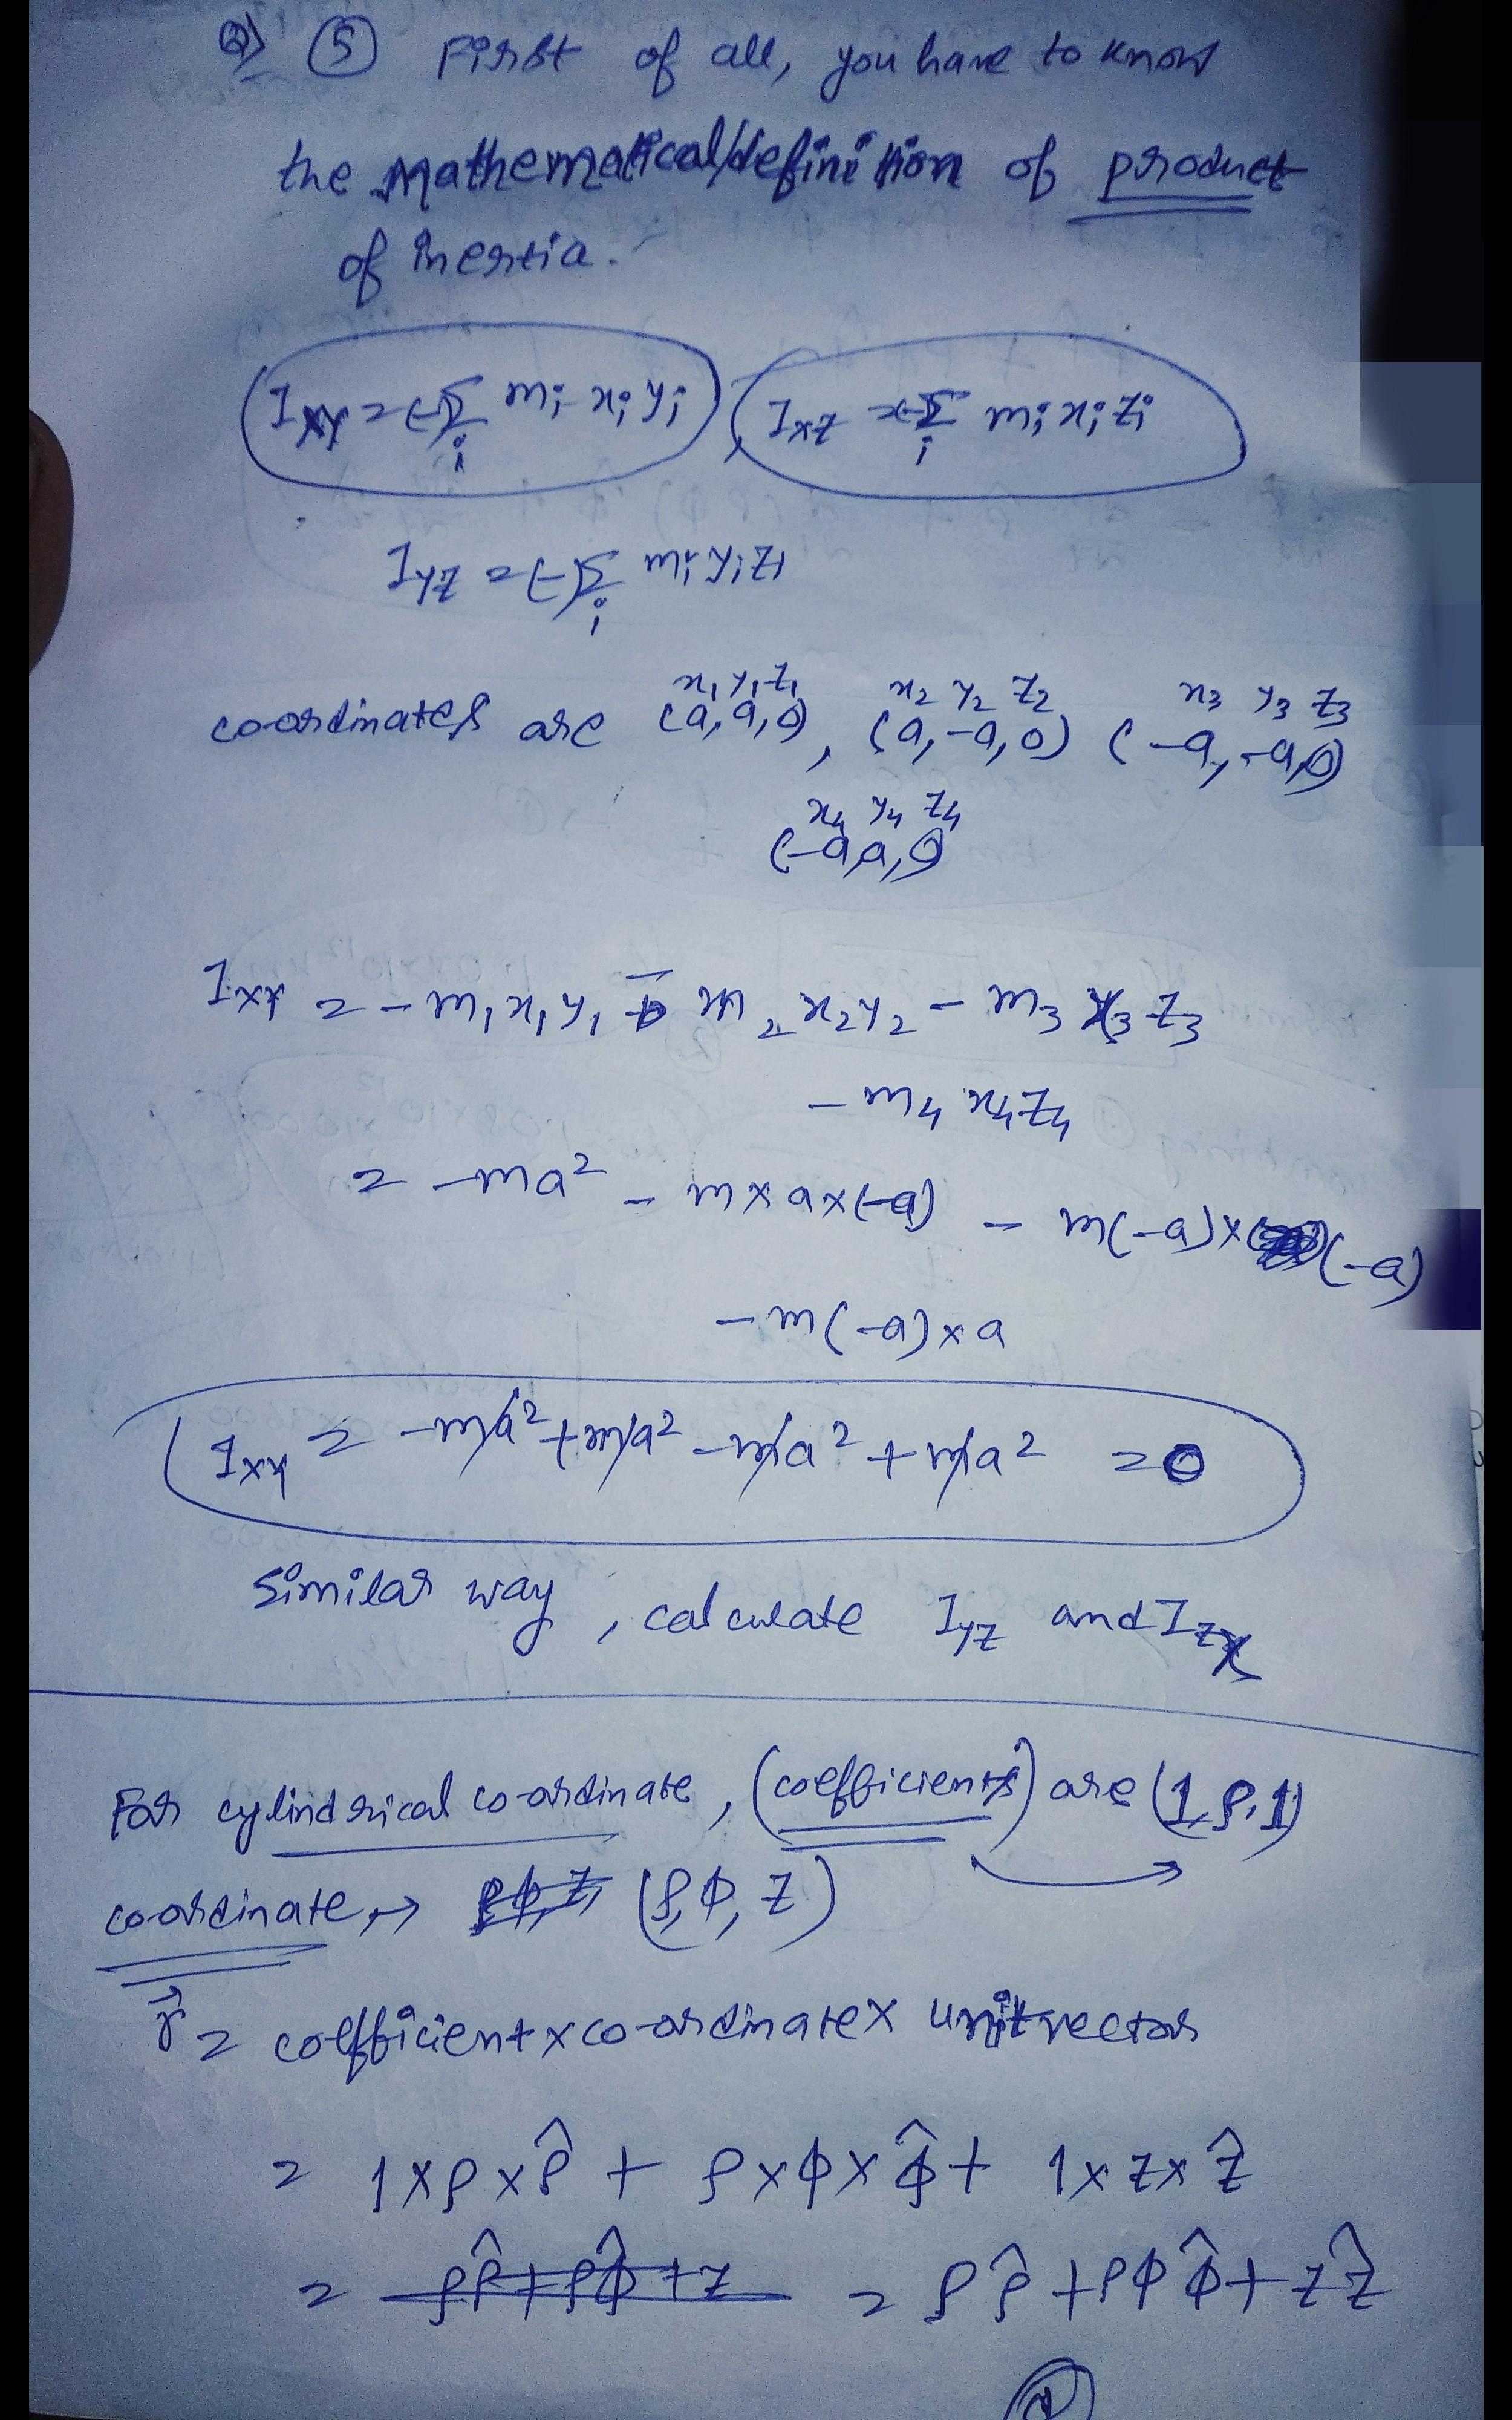 Q) ⑤ First of all, you have to know
the Mathematical/definition of product
of inertia.
I_xy = (-)Σ_i m_i x_i y_i, I_xz = -Σ_i m_i x_i z_i
I_yz = (-)Σ_i m_i y_i z_i
x₁ y₁ z₁ x₂ y₂ z₂ x₃ y₃ z₃
coordinates are (a, a, 0), (a, -a, 0) (-a, -a, 0)
x₄ y₄ z₄
(-a, a, 0)
I_xy = - m₁ x₁ y₁ - m₂ x₂ y₂ - m₃ x₃ z₃
- m₄ x₄ z₄
= -ma² - m × a × (-a) - m(-a) × (-a)
- m(-a) × a
I_xy = -ma² + ma² - ma² + ma² = 0
Similar way, calculate I_yz and I_zx
For cylindrical co-ordinate, (coefficients) are (1, ρ, 1)
co-ordinate, → (ρ, ϕ, z)
r⃗ = coefficient × co-ordinate × unit vector
= 1 × ρ × ρ̂ + ρ × ϕ × ϕ̂ + 1 × z × ẑ
= ρρ̂ + ρϕ̂ + z = ρρ̂ + ρϕϕ̂ + zẑ